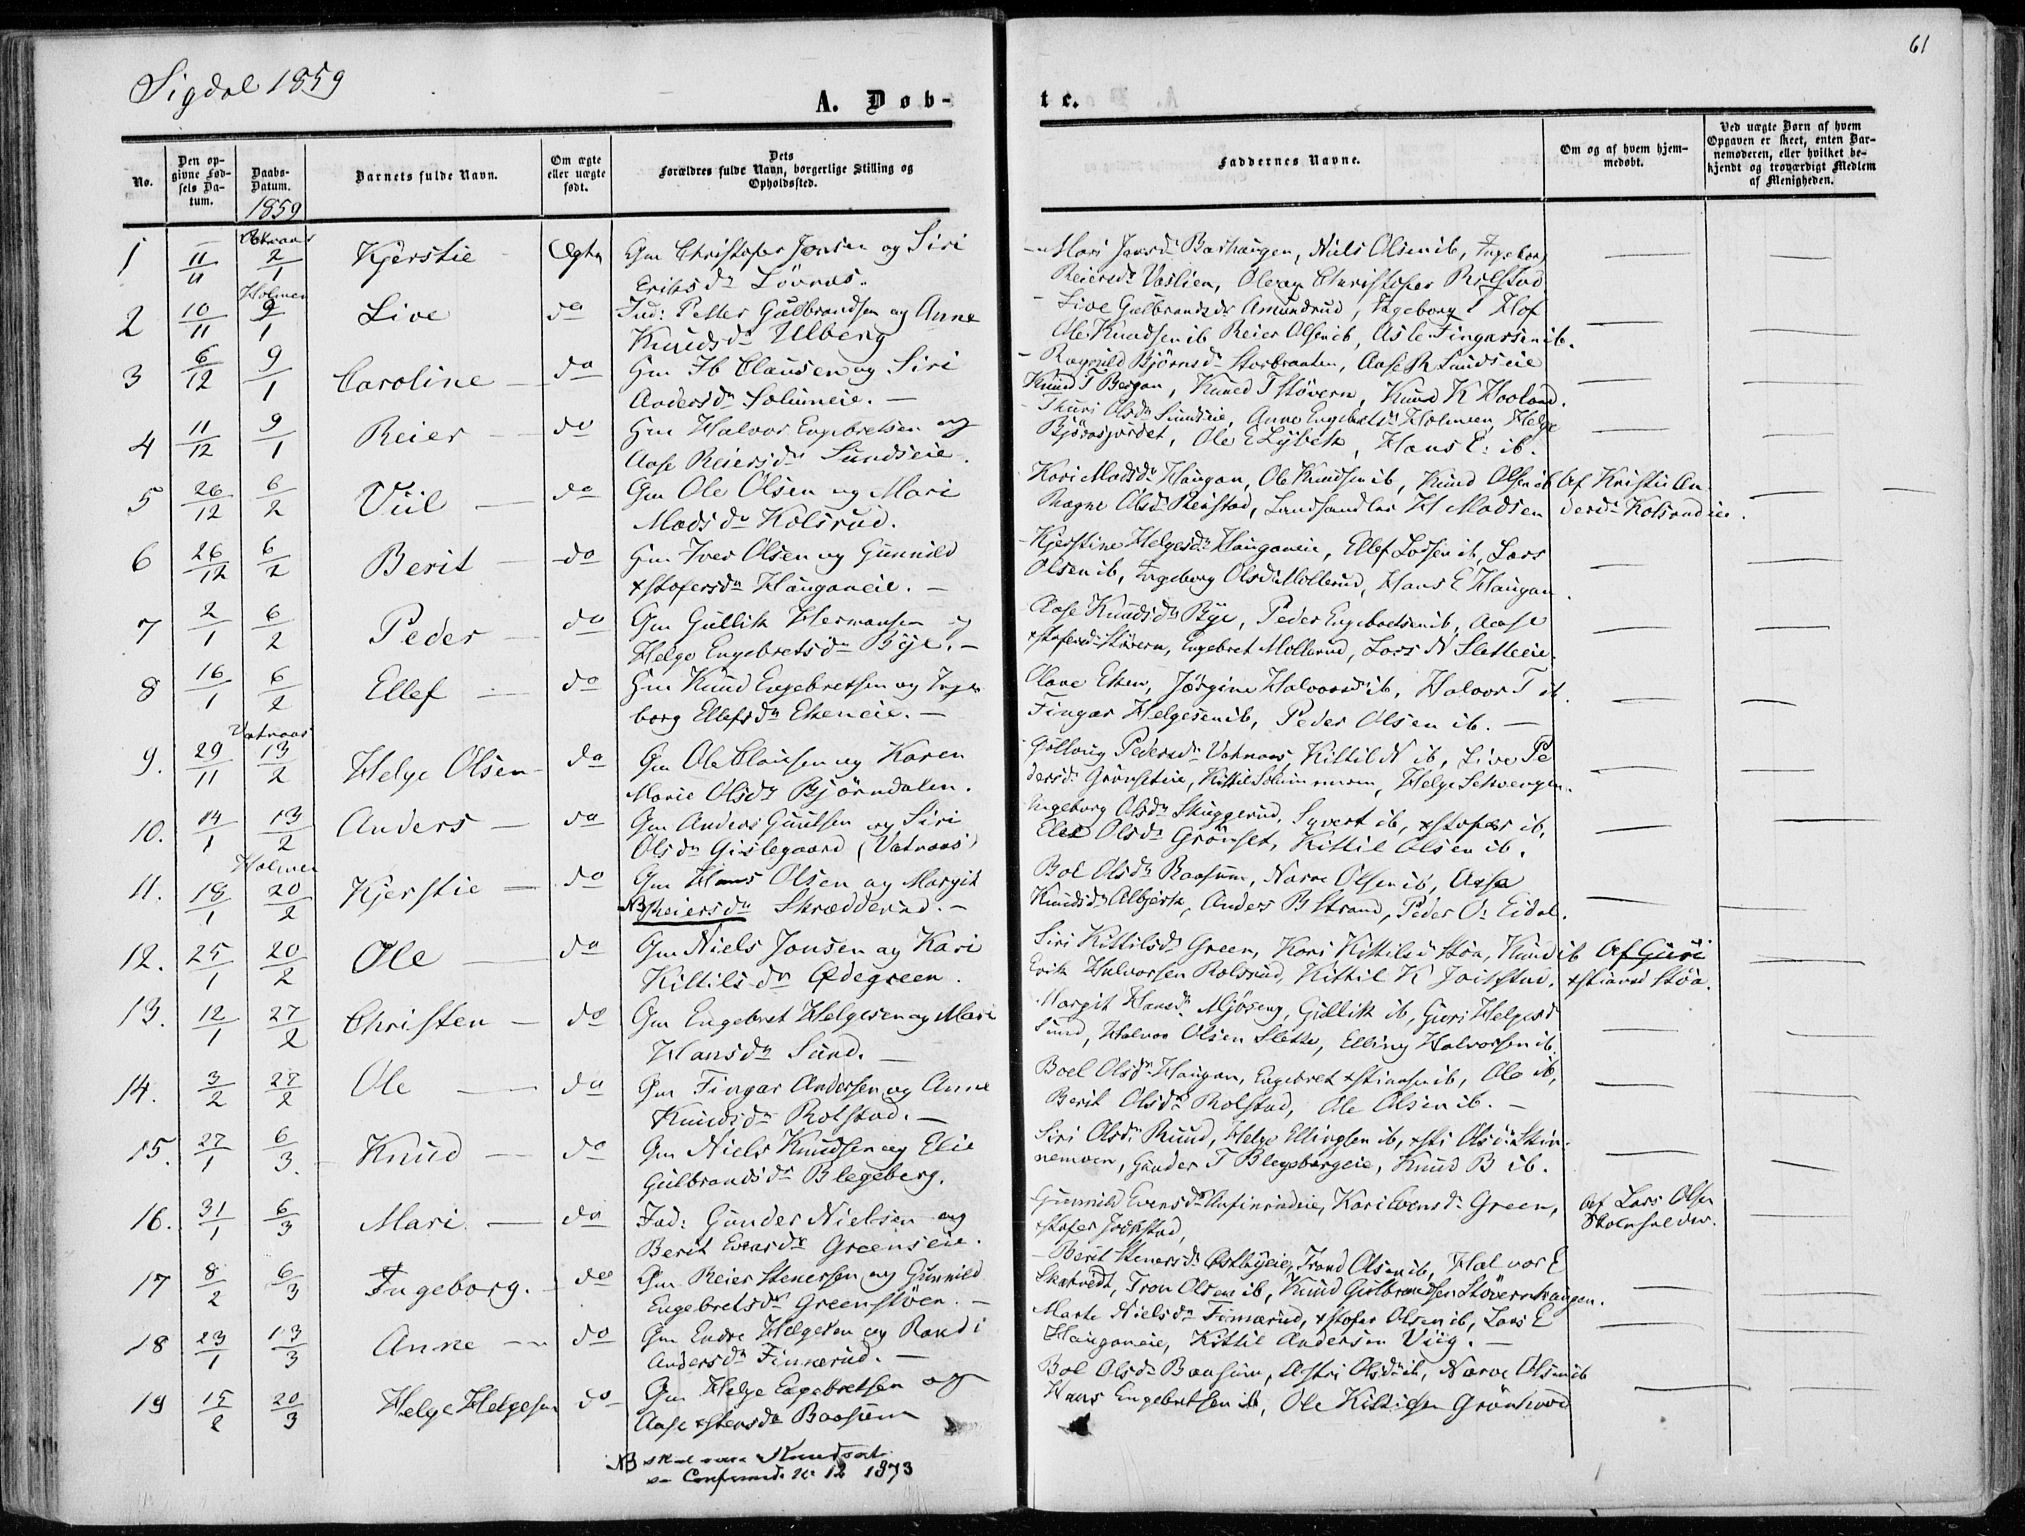 61
Sigdal 1859
A. Døb-
te.
No.
Den op-
givne Fød-
sels Da-
tum.
Daabs-
Datum.
1859
Barnets fulde Navn.
Om ægte
eller uægte
født.
Dets
Forældres fulde Navn, borgerlige Stilling og
Opholdssted.
Faddernes Navne.
Om og af hvem hjem-
medøbt.
Ved uægte Børn af hvem
Opgaven er skeet, enten Bar-
nemoderen, eller hvilket be-
kjendt og troværdigt Medlem
af Menigheden.
1 11/11 Vatnaas 2/1 Kjerstie Ægte Gm Christopher Jensen og Siri
Eriksdr Lövnæs.
Mari Jensdr Bashaugen, Niels Olsen ib, Ingeborg
Reiersdr Vaslien, Ole og Christopher Rolfstad
2 10/11 Holmen 9/1 Live do Ind: Petter Gulbrandsen og Anne
Knudsdr Ulberg
Live Gulbrandsdr Amundrud, Ingeborg T Hof
Ole Knudsen ib Reier Olsen ib, Asle Fingarsen ib.
3 6/12 9/1 Caroline do Gm Ib Clausen og Siri
Andersdr Solumeie.
Ragnild Bjørnsdr Storbraaten, Aase R Sundseie
Knud T Bergan, Knud T Støvern, Knud K Hovland.
4 11/12 9/1 Reier do Gm Halvor Engebretsen og
Aase Reiersdr Sundseie.
Thuri Olsdr Sundseie, Anne Engebretsdr Holmen, Helge
Bjøræsjordet, Ole E Lybeck, Hans E: ib.
5 26/12 6/2 Viil do Gm Ole Olsen og Mari
Madsdr Kolsrud.
Kari Madsdr Haugan, Ole Knudsen ib, Knud Olsen ib
Ragne Olsdr Reistad, Landhandler H Madsen
Af Kristie An-
dersdr Kolsrudeie.
6 26/12 6/2 Berit do Gm Iver Olsen og Gunnild
xstofersdr Hauganeie.
Kjerstine Helgesdr Hauganeie, Ellef Larsen ib, Lars
Olsen ib, Ingeborg Olsdr Mollerud, Hans E Haugan.
7 2/1 6/2 Peder do Gm Gullik Hermansen og
Helge Engebretsdr Bye.
Aase Knudsdr Bye, Peder Engebretsen ib, Aase
xstofersdr Støvern, Engebret Mollerud, Lars N Sletteeie.
8 16/1 6/2 Ellef do Gm Knud Engebretsen og Inge-
borg Ellefsdr Ekeneie.
Olave Eken, Jørgine Halvorsdr ib, Halvor T ib.
Fingar Helgesen ib, Peder Olsen ib.
9. 29/11 Vatnaas 13/2 Helge Olsen do Gm Ole Clausen og Karen
Marie Olsdr Bjørndalen.
Pedersdr Vatnaas, Kittil N ib, Live Pe-
dersdr Grønseteie, Helge Schvengen.
10. 14/1 13/2 Anders do Gm Anders Guulsen og Siri
Olsdr Gislegaard (Vatnaas)
Ingeborg Olsdr Skuggerud, Syvert ib, xstofer ib,
Olsdr Grønset, Kittil Olsen ib.
11. 19/1 Holmen 20/2 Kjerstie do Gm Hans Olsen og Margit
NB Reiersdr Skrædderud.
Bol Olsdr Baasum, Narve Olsen ib, Aase
Knudsdr Albjerk, Anders B Strand, Peder O: Eidal.
12. 25/1 20/2 Ole do Gm Niels Jonsen og Kari
Kittilsdr Ødegreen.
Siri Kittilsdr Green, Kari Kittilsd Støa, Knud ib
Erik Halvorsen Rolsrud, Kittil K Joitstad.
Af Guri
xstiansd Støa.
13. 12/1 27/2 Christen do Gm Engebret Helgesen og Mari
Hansdr Sund.
Margit Hansdr Mjøseng, Gullik ib, Guri Helgesd
Sund, Halvor Olsen Slette, Elling Halvorsen ib.
14. 3/2 27/2 Ole do Gm Fingar Andersen og Anne
Knudsdr Rolstad.
Boel Olsdr Haugan, Engebret xstiansen ib, Ole ib,
Berit Olsdr Rolstad, Ole Olsen ib.
15. 27/1 6/3. Knud do Gm Niels Knudsen og Elie
Gulbrandsdr Blegeberg.
Siri Olsdr Ruud, Helge Ellingsen ib, xsti Olsdr Skin-
nemoen, Gunder T Blegebergeie, Knud B ib.
16. 31/1 6/3 Mari do Ind: Gunder Nielsen og
Berit Evensdr Greenseie.
Gunnild Evensdr Anfinrudeie, Kari Evensdr Green,
xstofer Jokstad,
Af Lars Olsen
Skoleholder.
17 8/2 6/3 Ingeborg. do Gm Reier Stenersen og Gunnild
Engebretsdr Greenstøen.
Berit Stenersdr Østbyeie, Trond Olsen ib, Halvor E
Skatvedt, Tron Olsen ib, Knud Gulbrandsen Støvernhaugen.
18 23/1 13/3 Anne do Gm Endre Helgesen og Randi
Andersdr Finnerud.
Marte Nielsdr Finnerud, xstofer Olsen ib, Lars E
Hauganeie, Kittil Andersen Viig.
19 15/2 20/3 Helge Helgesen do Gm Helge Engebretsen og
Aase xstensdr Baasum
Bol Olsdr Baasum, Astri Olsdr ib, Narve Olsen ib
Hans Engebretsen ib, Ole Kittilsen Grønhovd
NB skal være Knudsdt
se Confirmerede No 12 1873